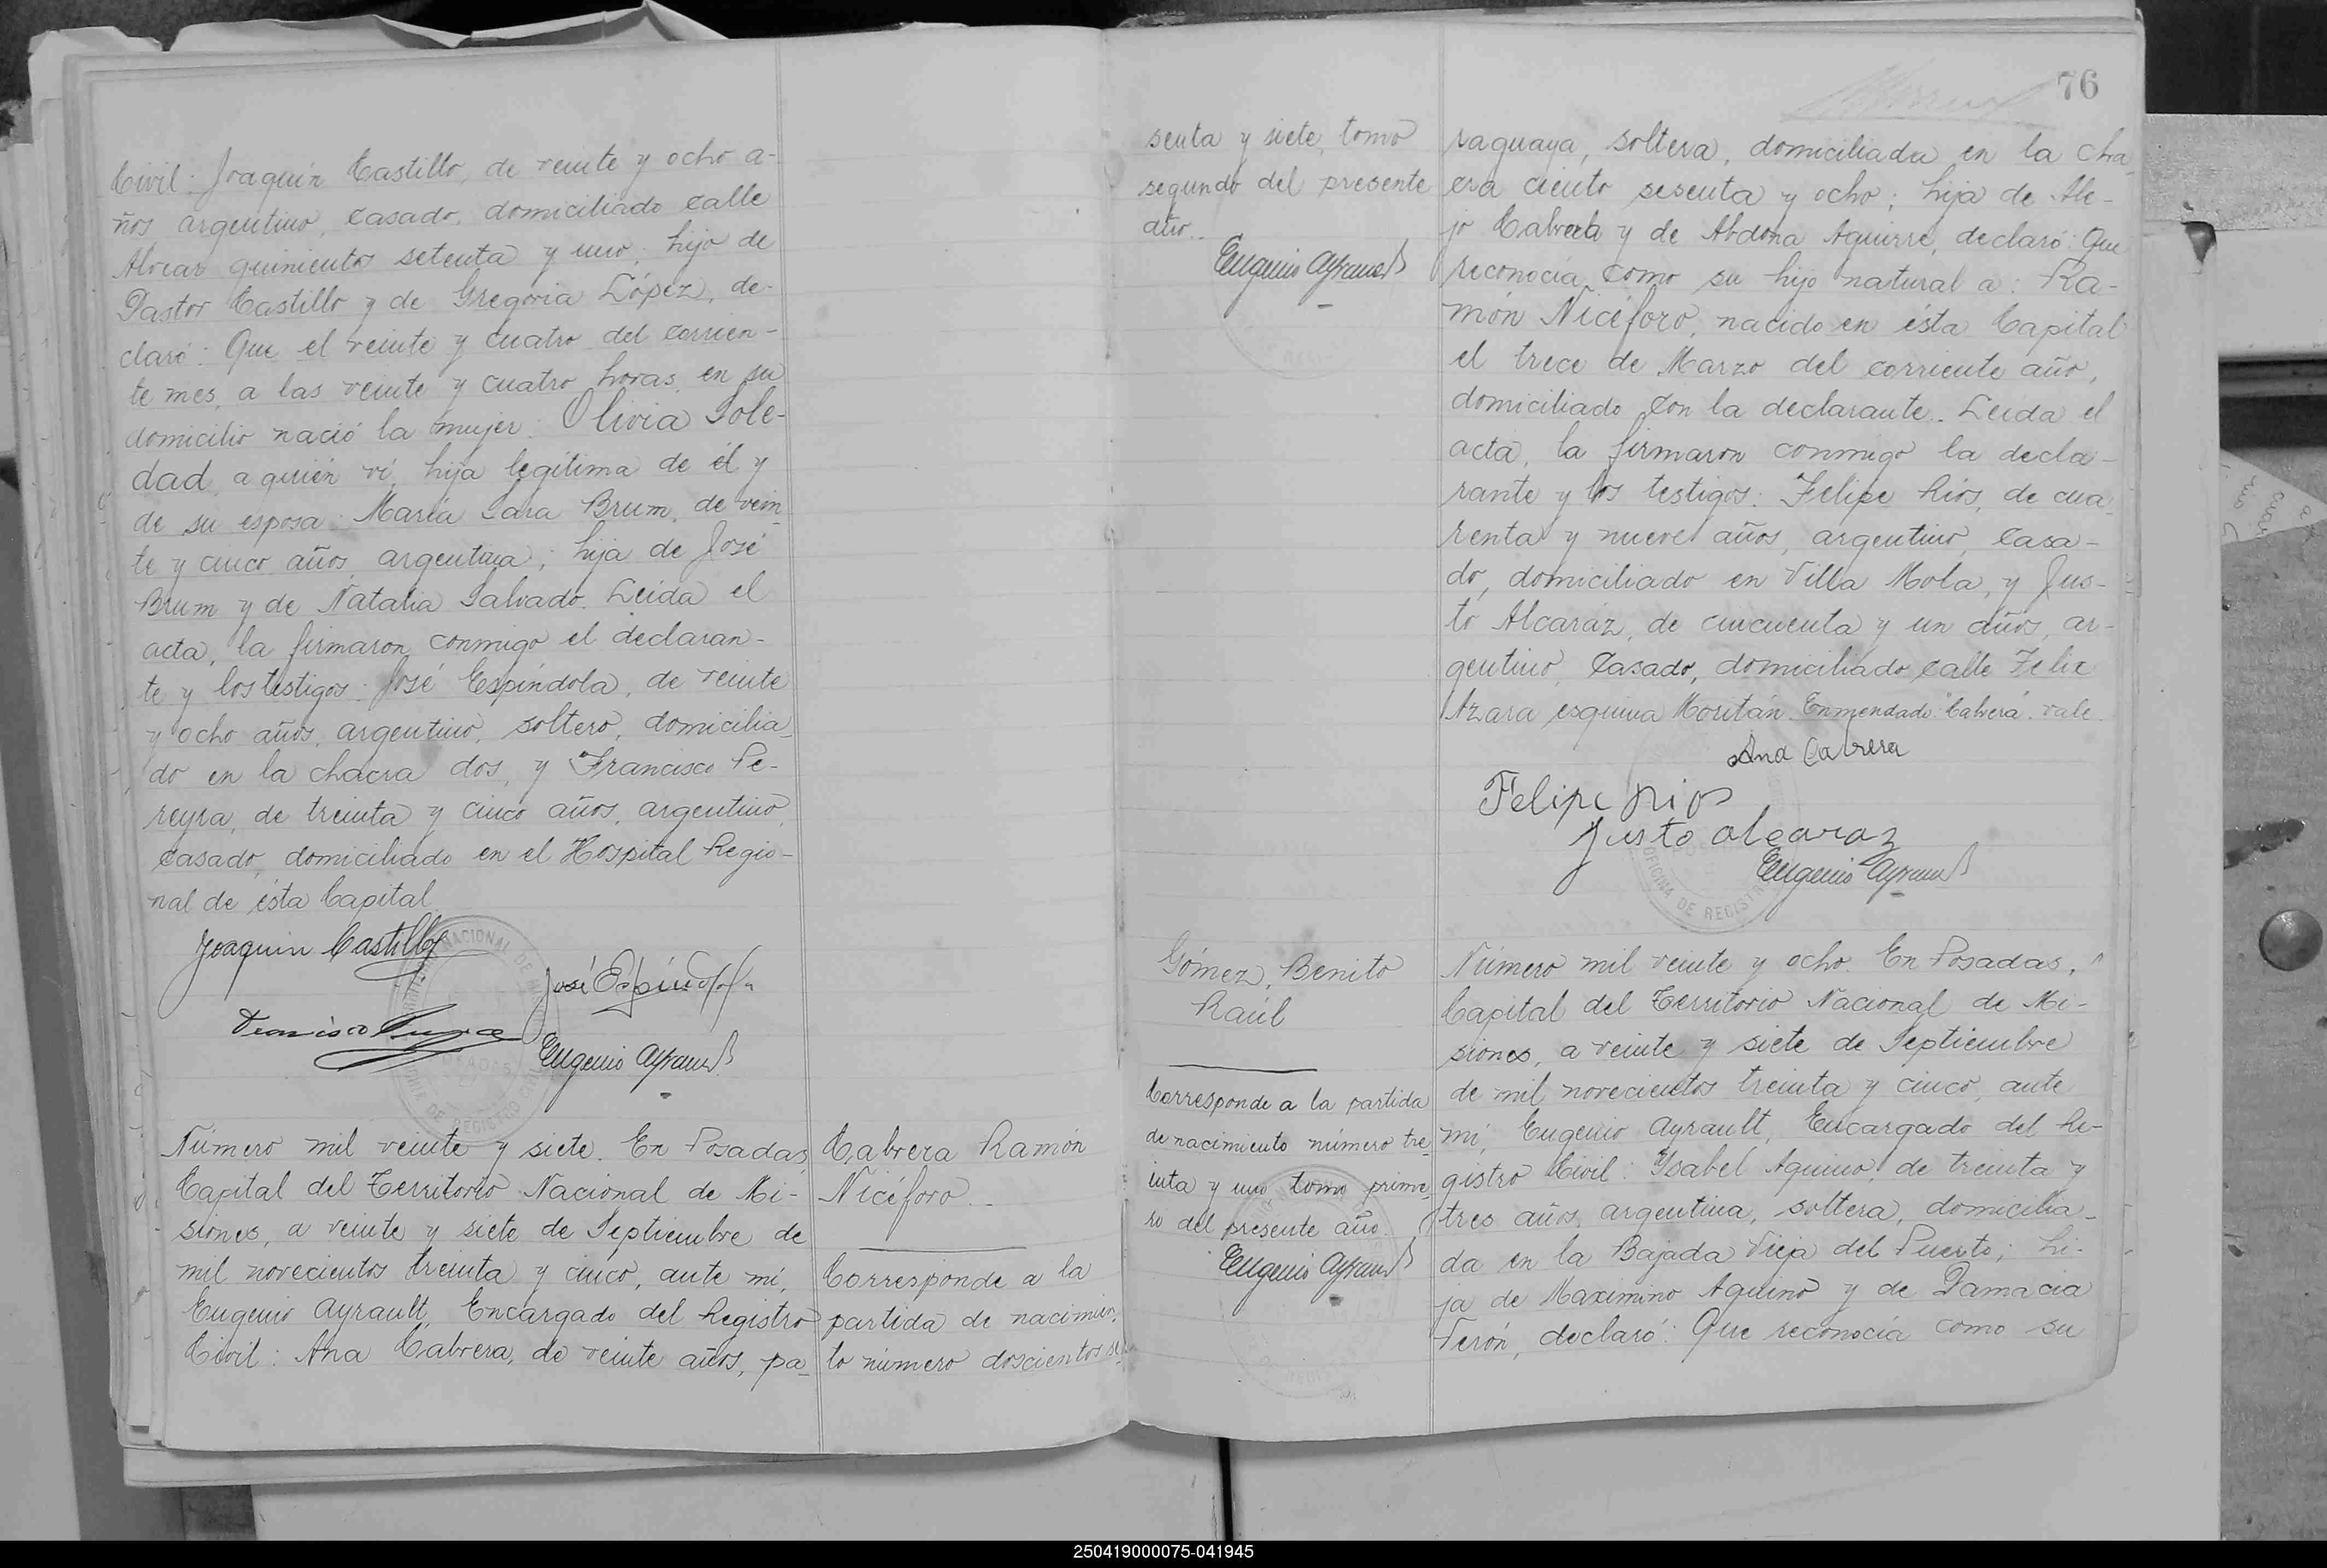 Civil: Joaquín Castillo, de veinte y ocho a-
ños argentino, casado, domiciliado calle
Alvear quinientos setenta y uno; hijo de
Pastor Castillo y de Gregoria López, de-
claró: Que el veinte y cuatro del corrien-
te mes, a las veinte y cuatro horas, en su
domicilio nació la mujer: Olivia Sole-
dad, a quién ví, hija legítima de él y
de su esposa: María Sara Brum, de vein
te y cinco años, argentina; hija de José
Brum y de Natalia Salvado. Leida el
acta, la firmaron conmigo el declaran-
te y los testigos: José Espíndola, de veinte
y ocho años, argentino, soltero, domicilia
do en la chacra dos, y Francisco Pe-
reyra, de treinta y cinco años, argentino,
casado, domiciliado en el Hospital Regio-
nal de ésta Capital
Joaquin Castillo
José Espindola
Eugenio Ayrault
Número mil veinte y siete. En Posadas,
Capital del Territorio Nacional de Mi-
siones, a veinte y siete de Septiembre de
mil novecientos treinta y cinco, ante mí,
Eugenio Ayrault, Encargado del Registro
Civil: Ana Cabrera, de veinte años, pa-
Cabrera Ramón
Nicéforo..
Corresponde a la
partida de nacimien
to número doscientos se
76
senta y siete, tomo
segundo del presente
año..
Eugenio Ayrault
raguaya, soltera, domiciliada en la cha
cra ciento sesenta y ocho; hija de Ale-
jo Cabrera y de Abdona Aguirre, declaró: Que
reconocía como su hijo natural a: Ra-
món Nicéforo, nacido en ésta Capital
el trece de Marzo del corriente año,
domiciliado con la declarante.. Leida el
acta, la firmaron conmigo la decla-
rante y los testigos: Felipe Rios, de cua
renta y nueve años, argentino, casa-
do, domiciliado en Villa Mola, y Jus-
to Alcaráz, de cincuenta y un años, ar-
gentino, casado, domiciliado calle Felix
Azara esquina Moritán. Enmendado: "Cabrera". vale.
Ana Cabrera
Felipe Rios
Justo alcaraz
Eugenio Ayrault
Gómez, Benito
Raúl
Corresponde a la partida
de nacimiento número tre
inta y uno, tomo prime
ro del presente año.
Eugenio Ayrault
Número mil veinte y ocho. En Posadas,
Capital del Territorio Nacional de Mi-
siones, a veinte y siete de Septiembre
de mil novecientos treinta y cinco, ante
mí, Eugenio Ayrault, Encargado del Re-
gistro Civil: Ysabel Aquino, de treinta y
tres años, argentina, soltera, domicilia-
da en la Bajada Vieja del Puerto; hi-
ja de Maximino Aquino y de Damacia
Verón, declaró: Que reconocía como su
250419000075-041945